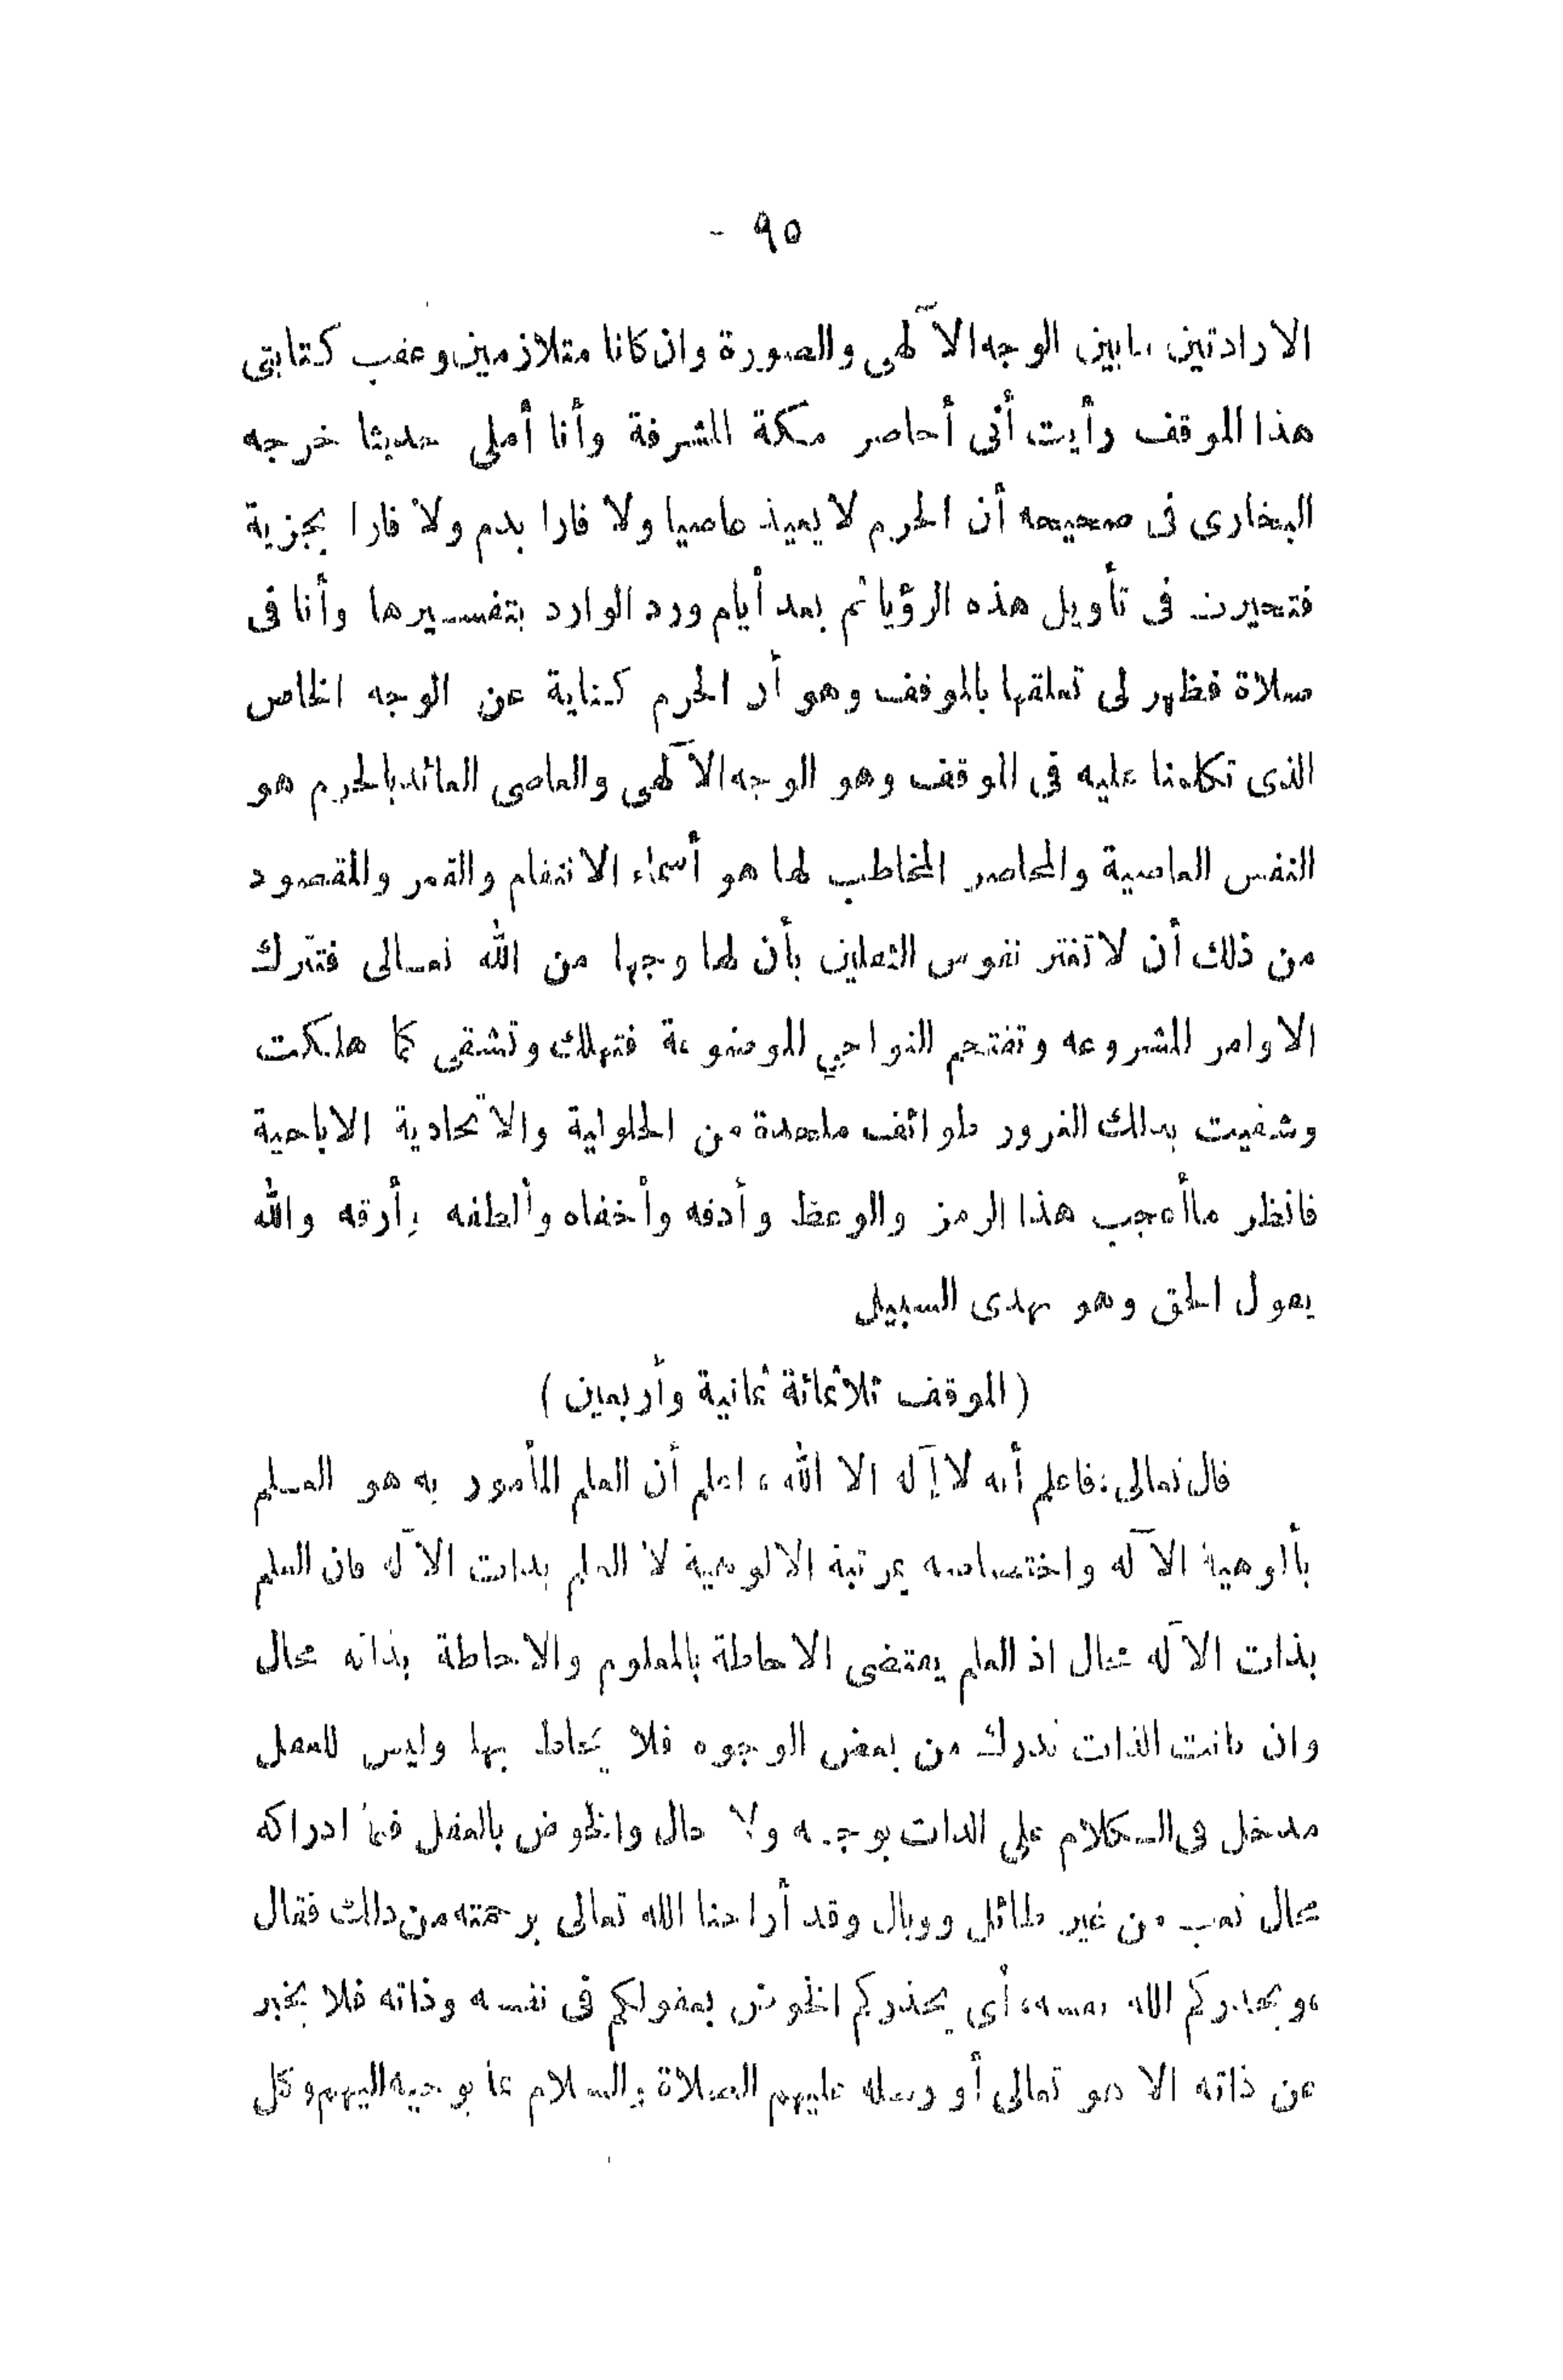 ٩٥ -
الارادتين مابين الوجه الآلهى والصورة وان كانا متلازمين وعقب كتابتى
هذا الموقف رأيت أنى أحاصر مكة المشرفة وأنا أملى حديثا خرجه
البخارى فى صحيحه أن الحرم لا يعيذ عاصيا ولا فارا بدم ولا فارا بجزية
فتحيرت فى تأويل هذه الرؤيا ثم بعد أيام ورد الوارد بتفسيرها وأنا فى
صلاة فظهر لى تعلقها بالموقف وهو أن الحرم كناية عن الوجه الخاص
الذى تكلمنا عليه فى الموقف وهو الوجه الآلهى والعاصى العائذ بالحرم هو
النفس العاصية والمحاصر المخاطب لها هو أسماء الانتقام والقهر والمقصود
من ذلك أن لا تغتر نفوس الثقلين بأن لها وجها من الله تعالى فتترك
الاوامر المشروعه وتقتحم النواحي الموضوعة فتهلك وتشقى كما هلكت
وشقيت بذلك الغرور طوائف ملحدة من الحلولية والاتحادية الاباحية
فانظر ماأعجب هذا الرمز والوعظ وأدقه وأخفاه وألطفه وأرقه والله
يقول الحق وهو يهدى السبيل
(الموقف ثلاثمائة ثمانية وأربعين)
قال تعالى: فاعلم أنه لا إله الا الله، اعلم أن العلم المأمور به هو العلم
بألوهية الآله واختصاصه بمرتبة الالوهية لا العلم بذات الآله فان العلم
بذات الآله محال اذ العلم يقتضى الاحاطة بالمعلوم والاحاطة بذاته محال
وان كانت الذات تدرك من بعض الوجوه فلا يحاط بها وليس للعقل
مدخل فى الكلام على الذات بوجه ولا حال والخوض بالعقل فيما ادراكه
محال تعب من غير طائل ووبال وقد أراحنا الله تعالى برحمته من ذلك فقال
،ويحذركم الله نفسه، أى يحذركم الخوض بعقولكم فى نفسه وذاته فلا يخبر
عن ذاته الا هو تعالى أو رسله عليهم الصلاة والسلام بما يوحيه اليهم وكل